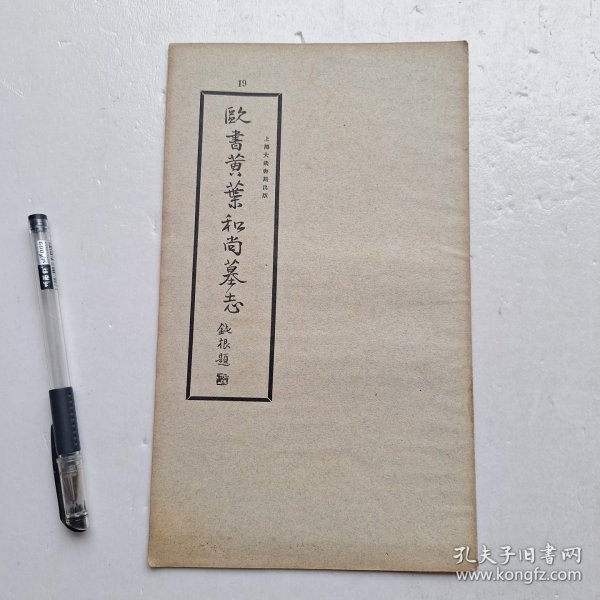 19
上海大眾書局出版
歐書黃葉和尚墓志
鈍根題
孔夫子旧书网
www.kongfz.com